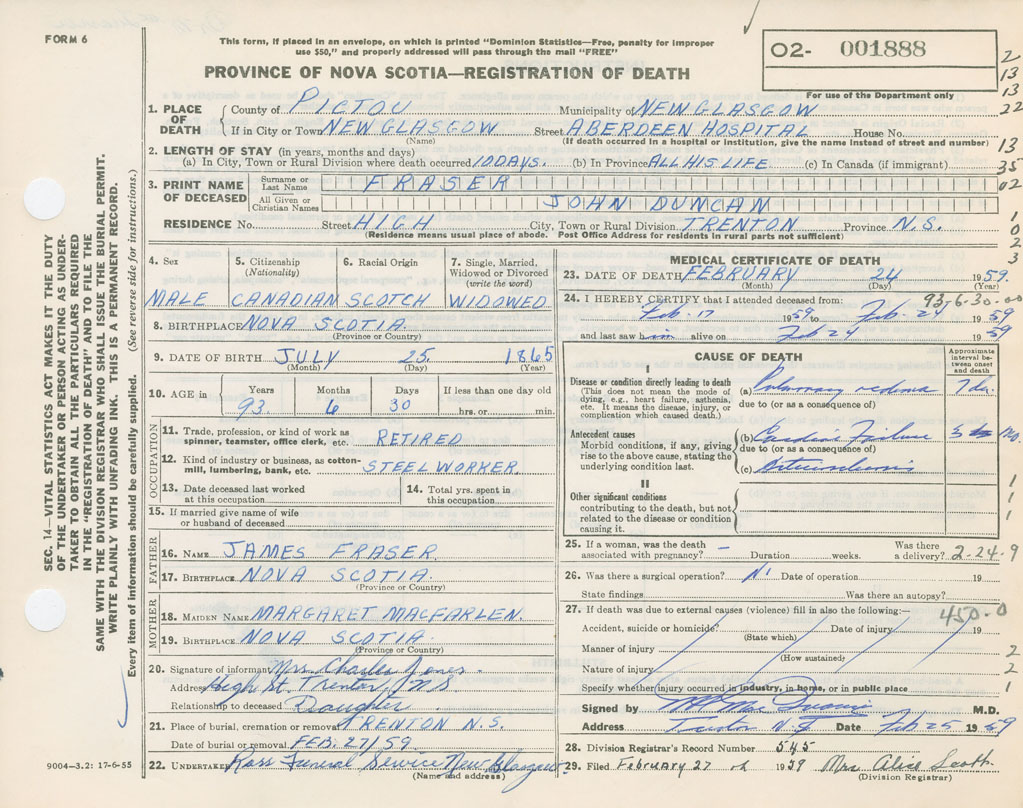 FORM 6
This form, if placed in an envelope, on which is printed "Dominion Statistics—Free, penalty for improper
use $50," and properly addressed will pass through the mail "FREE"
PROVINCE OF NOVA SCOTIA—REGISTRATION OF DEATH
02- 001888
For use of the Department only
2
13
13
22
13
35
02
1
0
2
3
SEC. 14—VITAL STATISTICS ACT MAKES IT THE DUTY
OF THE UNDERTAKER OR PERSON ACTING AS UNDER-
TAKER TO OBTAIN ALL THE PARTICULARS REQUIRED
IN THE "REGISTRATION OF DEATH" AND TO FILE THE
SAME WITH THE DIVISION REGISTRAR WHO SHALL ISSUE THE BURIAL PERMIT.
WRITE PLAINLY WITH UNFADING INK. THIS IS A PERMANENT RECORD.
Every item of information should be carefully supplied. (See reverse side for instructions.)
1. PLACE OF DEATH
County of PICTOU Municipality of NEW GLASGOW
If in City or Town NEW GLASGOW Street ABERDEEN HOSPITAL House No.
(Name) (If death occurred in a hospital or institution, give the name instead of street and number)
2. LENGTH OF STAY (in years, months and days)
(a) In City, Town or Rural Division where death occurred 10 DAYS. (b) In Province ALL HIS LIFE. (c) In Canada (if immigrant)
3. PRINT NAME OF DECEASED
Surname or Last Name FRASER
All Given or Christian Names JOHN DUNCAN
RESIDENCE No. Street HIGH City, Town or Rural Division TRENTON Province N.S.
(Residence means usual place of abode. Post Office Address for residents in rural parts not sufficient)
4. Sex
MALE
5. Citizenship (Nationality)
CANADIAN
6. Racial Origin
SCOTCH
7. Single, Married, Widowed or Divorced (write the word)
WIDOWED
8. BIRTHPLACE NOVA SCOTIA.
(Province or Country)
9. DATE OF BIRTH JULY 25. 1865
(Month) (Day) (Year)
10. AGE in
Years Months Days If less than one day old
93. 6 30 hrs. or min.
OCCUPATION
11. Trade, profession, or kind of work as spinner, teamster, office clerk, etc. RETIRED
12. Kind of industry or business, as cotton-mill, lumbering, bank, etc. STEEL WORKER
13. Date deceased last worked at this occupation
14. Total yrs. spent in this occupation
15. If married give name of wife or husband of deceased
FATHER
16. NAME JAMES FRASER
17. BIRTHPLACE NOVA SCOTIA.
(Province or Country)
MOTHER
18. MAIDEN NAME MARGARET MACFARLEN.
19. BIRTHPLACE NOVA SCOTIA
(Province or Country)
20. Signature of informant Mrs. Charles Jones.
Address High St. Trenton, N.S
Relationship to deceased Daughter
21. Place of burial, cremation or removal TRENTON N.S.
Date of burial or removal FEB. 27/59
22. UNDERTAKER Ross Funeral Service New Glasgow
(Name and address)
9004-3.2: 17-6-55
MEDICAL CERTIFICATE OF DEATH
23. DATE OF DEATH FEBRUARY 24 1959.
(Month) (Day) (Year)
24. I HEREBY CERTIFY that I attended deceased from: 93-6-30-00
Feb. 17 1959 to Feb. 24 1959
and last saw him alive on Feb 24 1959
CAUSE OF DEATH
Approximate interval between onset and death
I
Disease or condition directly leading to death
(This does not mean the mode of dying, e.g., heart failure, asthenia, etc. It means the disease, injury, or complication which caused death.)
(a) Pulmonary oedema
due to (or as a consequence of)
Antecedent causes
Morbid conditions, if any, giving rise to the above cause, stating the underlying condition last.
(b) Cardiac Failure 3 mo
due to (or as a consequence of)
(c) Arteriosclerosis
II
Other significant conditions contributing to the death, but not related to the disease or condition causing it.
1
1
1
25. If a woman, was the death associated with pregnancy? — Duration weeks. Was there a delivery? 2-24-9
26. Was there a surgical operation? No Date of operation 19
State findings Was there an autopsy?
27. If death was due to external causes (violence) fill in also the following:— 450-0
Accident, suicide or homicide? Date of injury 19
(State which)
Manner of injury 2
(How sustained)
Nature of injury 2
Specify whether injury occurred in industry, in home, or in public place 1
Signed by M.D.
Address Trenton N.S. Date Feb 25 1959
28. Division Registrar's Record Number 545
29. Filed February 27 1959 Mrs. Alice Scott
(Division Registrar)